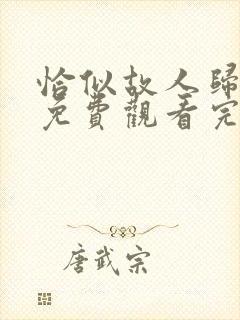 恰似故人歸
免費觀看完
唐武宗